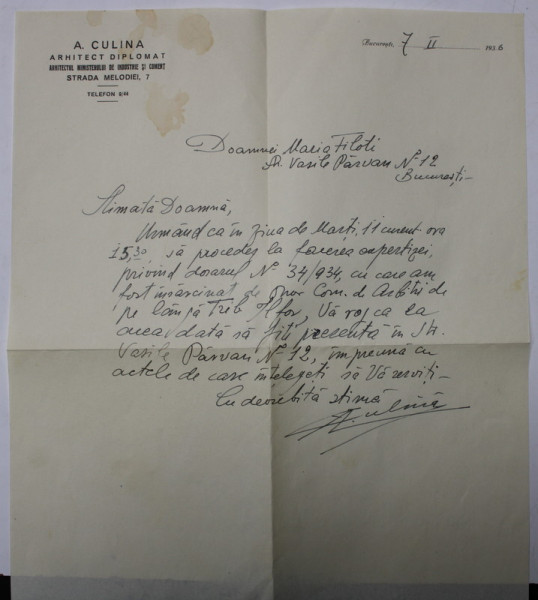 A. CULINA
ARHITECT DIPLOMAT
ARHITECTUL MINISTERULUI DE INDUSTRIE ȘI COMERȚ
STRADA MELODIEI, 7
TELEFON
București, 7 II 1936
Doamnei Maria Filoti
Str. Vasile Pârvan No 12
București -
Stimată Doamnă,
Urmând ca în ziua de Marți, 11 curent ora
15,30 să procedez la facerea expertizei,
privind dosarul No 34/934, cu care am
fost însărcinat de Onor Com. de Arbitri de
pe lângă Trib. Ilfov, Vă rog ca la
acea dată să fiți prezentă în Str.
Vasile Pârvan No 12, împreună cu
actele de care înțelegeți să Vă serviți -
Cu deosebită stimă
A. Culina